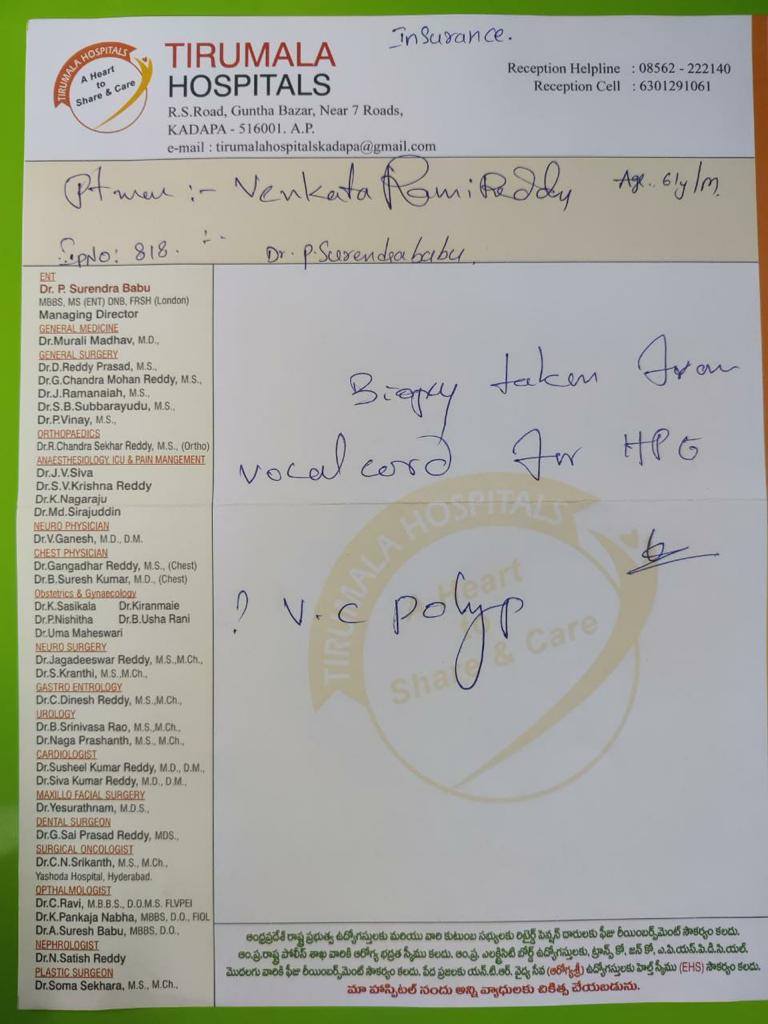 Insurance.
TIRUMALA HOSPITALS
A Heart
to
Share & Care
TIRUMALA
HOSPITALS
R.S.Road, Guntha Bazar, Near 7 Roads,
KADAPA - 516001. A.P.
e-mail : tirumalahospitalskadapa@gmail.com
Reception Helpline : 08562 - 222140
Reception Cell : 6301291061
:- Venkata Rami Reddy Age.. 61y/M.
IpNo: 818. Dr. P. Surendra babu.
ENT
Dr. P. Surendra Babu
MBBS, MS (ENT) DNB, FRSH (London)
Managing Director
GENERAL MEDICINE
Dr.Murali Madhav, M.D.,
GENERAL SURGERY
Dr.D.Reddy Prasad, M.S.,
Dr.G.Chandra Mohan Reddy, M.S.,
Dr.J.Ramanaiah, M.S.,
Dr.S.B.Subbarayudu, M.S.,
Dr.P.Vinay, M.S.,
ORTHOPAEDICS
Dr.R.Chandra Sekhar Reddy, M.S., (Ortho)
ANAESTHESIOLOGY, ICU & PAIN MANGEMENT
Dr.J.V.Siva
Dr.S.V.Krishna Reddy
Dr.K.Nagaraju
Dr.Md.Sirajuddin
NEURO PHYSICIAN
Dr.V.Ganesh, M.D., D.M.
CHEST PHYSICIAN
Dr.Gangadhar Reddy, M.S., (Chest)
Dr.B.Suresh Kumar, M.D., (Chest)
Obstetrics & Gynaecology
Dr.K.Sasikala Dr.Kiranmaie
Dr.P.Nishitha Dr.B.Usha Rani
Dr.Uma Maheswari
NEURO SURGERY
Dr.Jagadeeswar Reddy, M.S.,M.Ch.,
Dr.S.Kranthi, M.S.,M.Ch.,
GASTRO ENTROLOGY
Dr.C.Dinesh Reddy, M.S.,M.Ch.,
UROLOGY
Dr.B.Srinivasa Rao, M.S.,M.Ch.,
Dr.Naga Prashanth, M.S., M.Ch.,
CARDIOLOGIST
Dr.Susheel Kumar Reddy, M.D., D.M.,
Dr.Siva Kumar Reddy, M.D., D.M.,
MAXILLO FACIAL SURGERY
Dr.Yesurathnam, M.D.S.,
DENTAL SURGEON
Dr.G.Sai Prasad Reddy, MDS.,
SURGICAL ONCOLOGIST
Dr.C.N.Srikanth, M.S., M.Ch.,
Yashoda Hospital, Hyderabad.
OPTHALMOLOGIST
Dr.C.Ravi, M.B.B.S., D.O.M.S. FLVPEI
Dr.K.Pankaja Nabha, MBBS, D.O., FIOL
Dr.A.Suresh Babu, MBBS, D.O.,
NEPHROLOGIST
Dr.N.Satish Reddy
PLASTIC SURGEON
Dr.Soma Sekhara, M.S., M.Ch.,
Biopsy taken from
vocal cord for HPE
? V.C polyp
TIRUMALA HOSPITALS
A Heart
to
Share & Care
ఆంధ్రప్రదేశ్ రాష్ట్ర ప్రభుత్వ ఉద్యోగస్తులకు మరియు వారి కుటుంబ సభ్యులకు రిటైర్డ్ పెన్షన్ దారులకు ఫీజు రీయింబర్స్‌మెంట్ సౌకర్యం కలదు.
ఆం.ప్ర.రాష్ట్ర పోలీస్ శాఖ వారికి ఆరోగ్య భద్రత స్కీము కలదు. ఆం.ప్ర. ఎలక్ట్రిసిటీ బోర్డ్ ఉద్యోగస్తులకు, ట్రాన్స్ కో, జెన్ కో, ఎ.పి.యస్.పి.డి.సి.యల్.
మొదలగు వారికి ఫీజు రీయింబర్స్‌మెంట్ సౌకర్యం కలదు. పేద ప్రజలకు యన్.టి.ఆర్. వైద్య సేవ (ఆరోగ్యశ్రీ) ఉద్యోగస్తులకు హెల్త్ స్కీము (EHS) సౌకర్యం కలదు.
మా హాస్పిటల్ నందు అన్ని వ్యాధులకు చికిత్స చేయబడును.